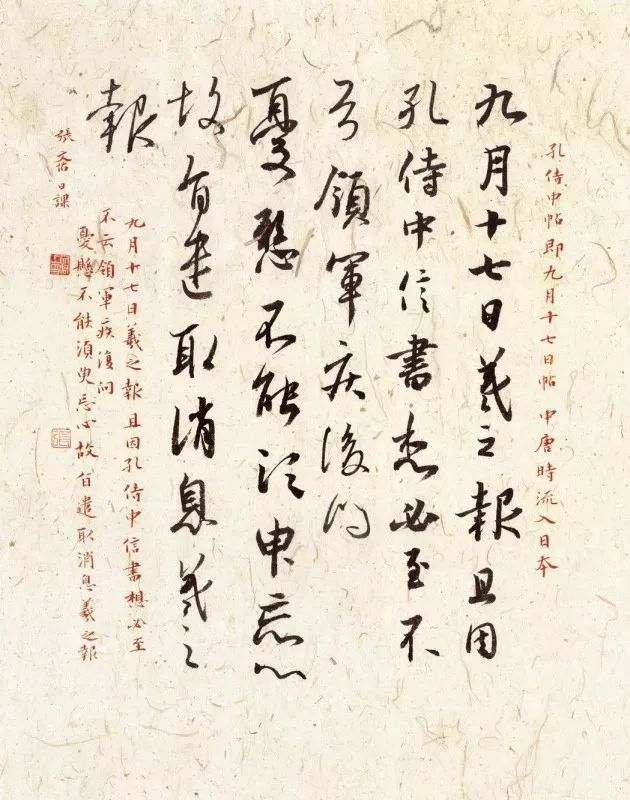 孔侍中帖即九月十七日帖 中唐時流入日本
九月十七日羲之報且因
孔侍中信書想必至不
云領軍疾後問
憂懸不能須臾忘心
故旨遣取消息羲之
報
張 日課
九月十七日羲之報且因孔侍中信書想必至
不云領軍疾復問
憂懸不能湏臾忘心故旨遣取消息羲之報